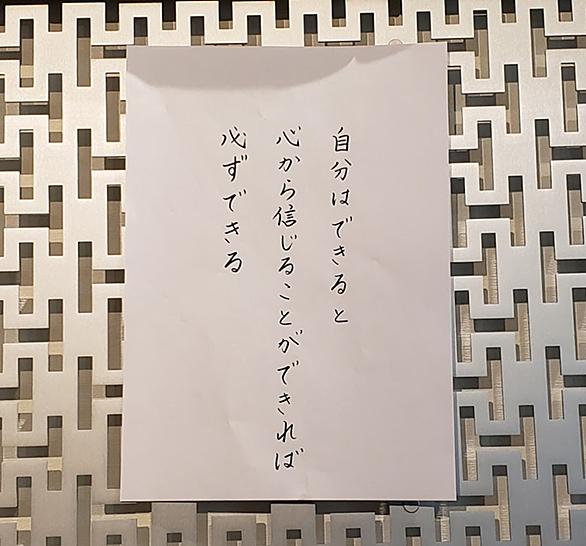 自分はできると
心から信じることができれば
必ずできる